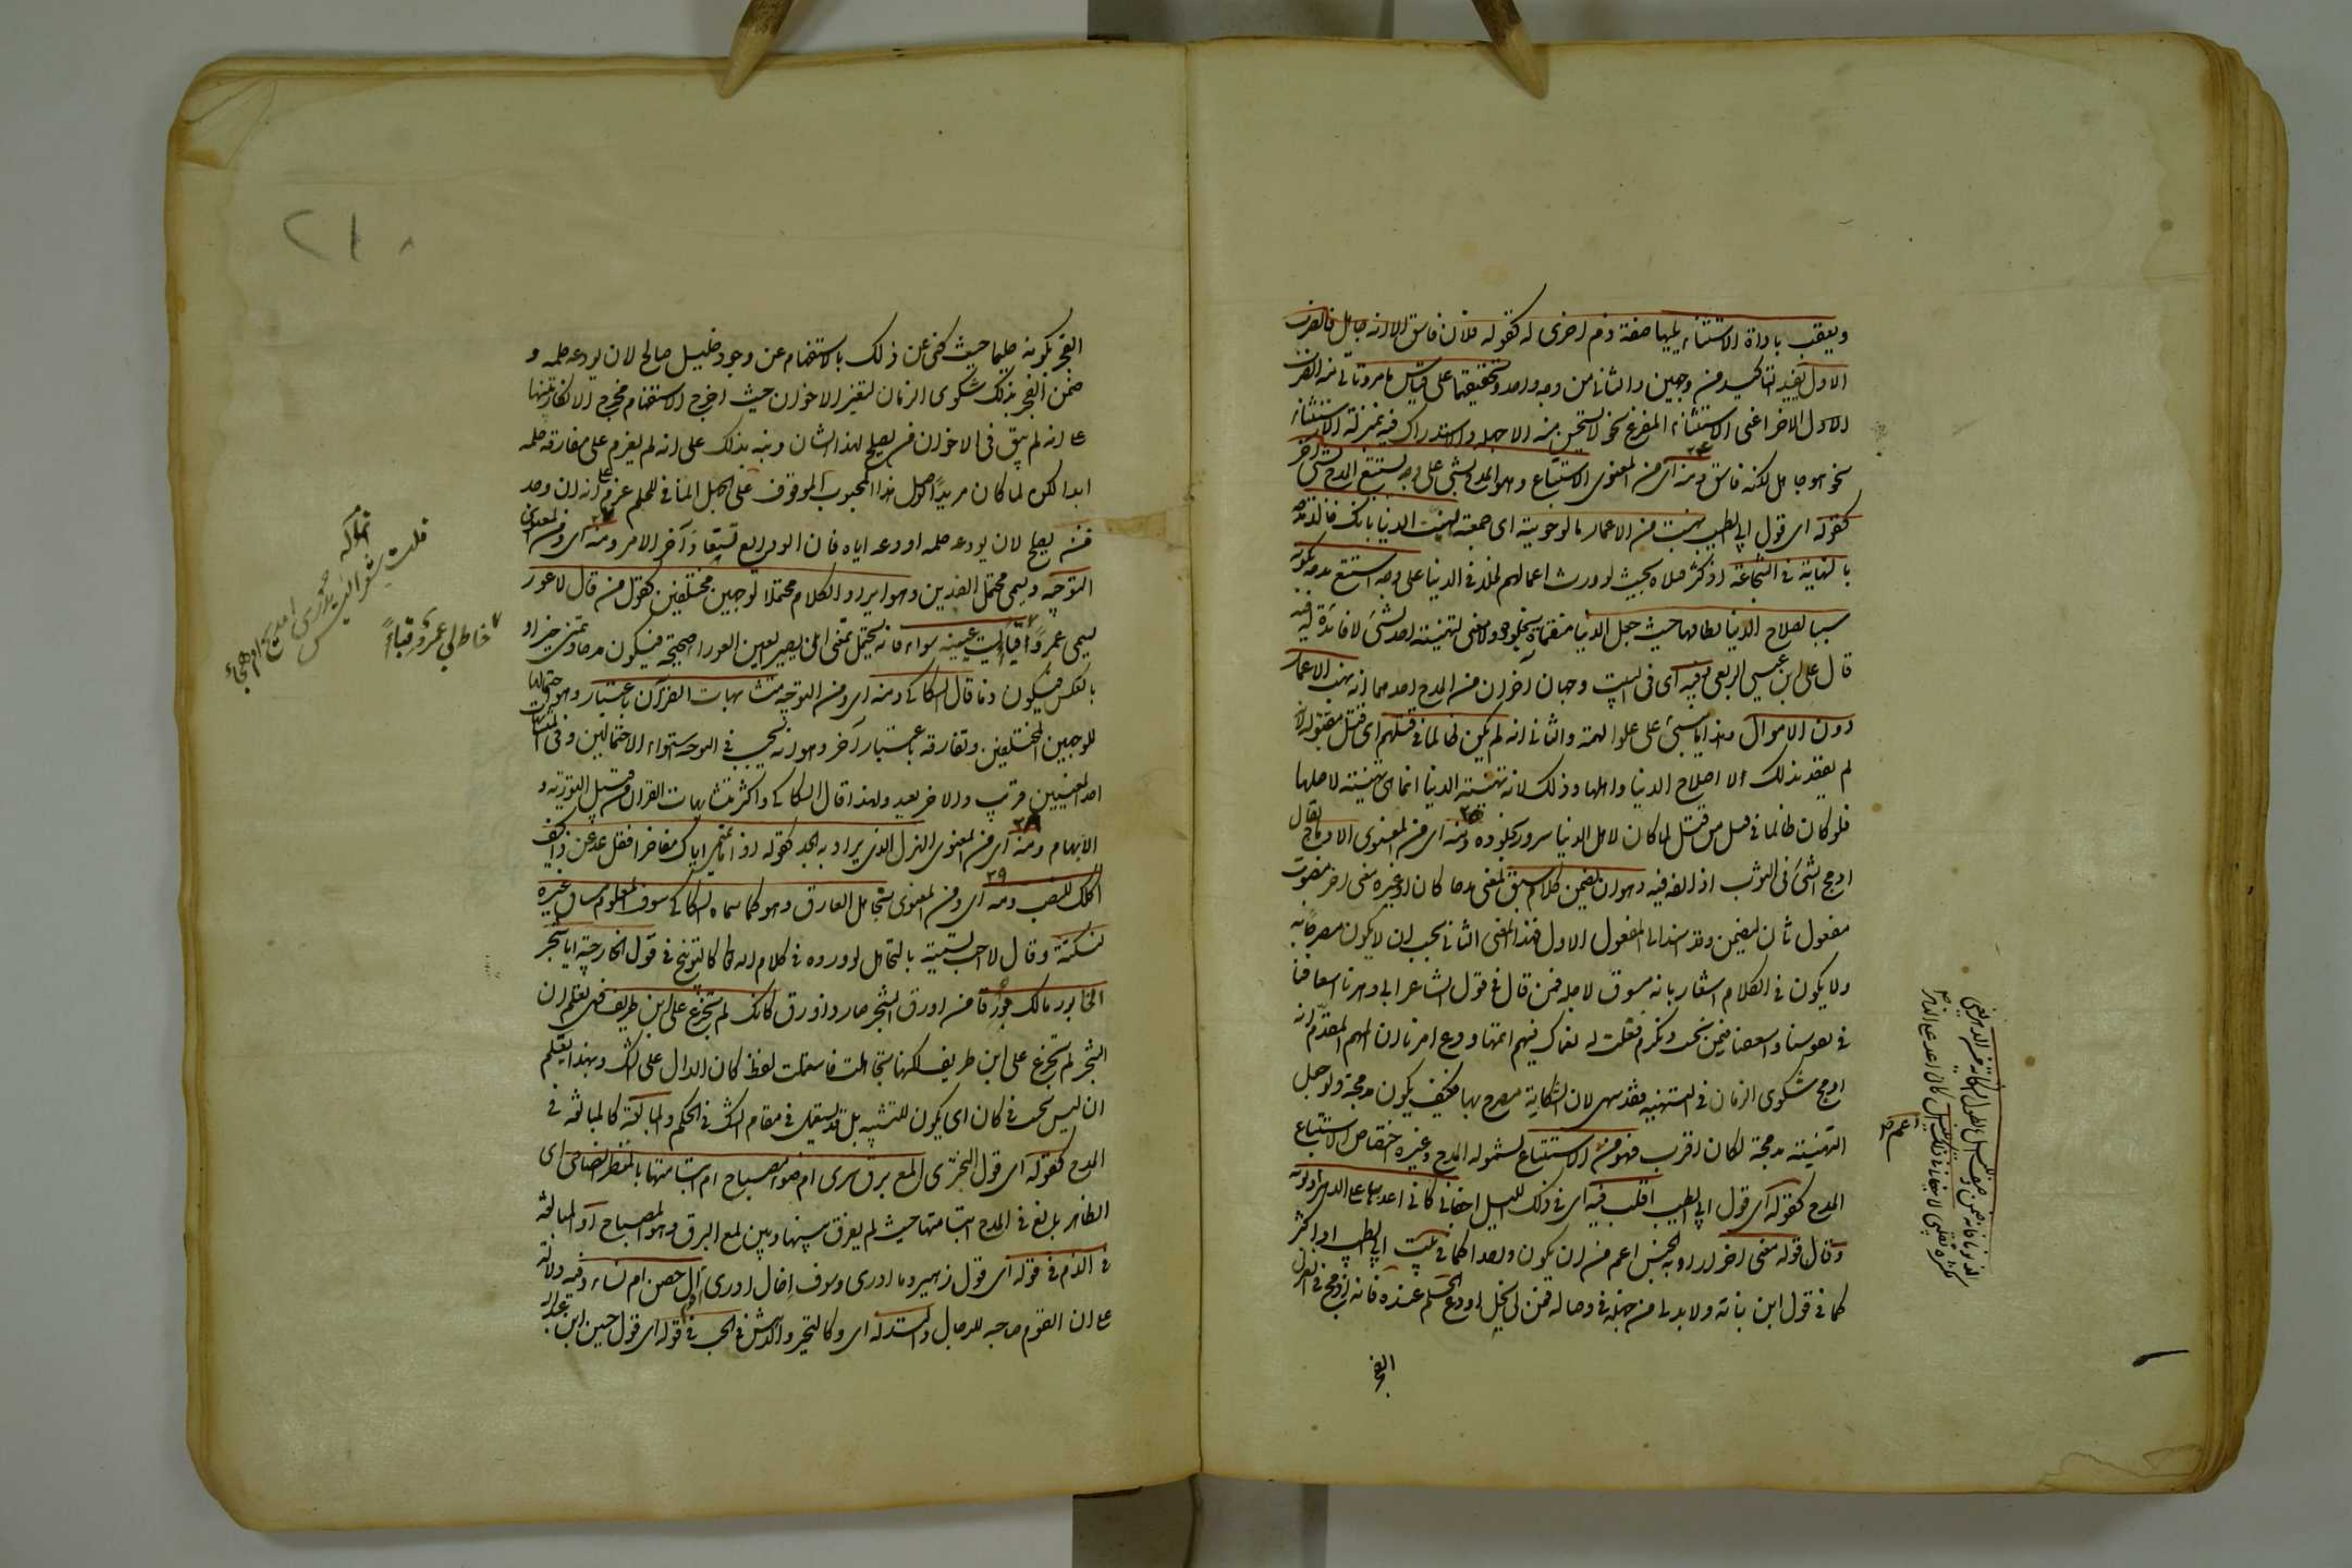 ويعقب باداة الاستثناء يليها صفة ذم اخرى له كقوله فلان فاسق الا انه جاهل فالضرب
الاول يفيد التاكيد من وجهين والثاني من وجه واحد وتحقيقهما على قياس ما مر وتاتي منه الضرب
الاول الاخر اعنى الاستثناء المفرغ نحو لا يستحسن منه الا جهله والاستدراك فيه بمنزلة الاستثناء
نحو هو جاهل لكنه فاسق ومنه اى من المعنوى الاستتباع وهو المدح بشئ على وجه يستتبع المدح بشئ آخر
كقوله اى قول ابى الطيب نهبت من الاعمار ما لو حويته اى جمعته لهنئت الدنيا بانك خالد مدحه
بالنهاية فى الشجاعة اذ كثر قتلاه بحيث لو ورث اعمارهم لخلد فى الدنيا على وجه استتبع مدحه بكونه
سببا لصلاح الدنيا ونظامها حيث جعل الدنيا مهناة بخلوده ولا معنى لتهنئة احد بشئ لا فائدة له فيه
قال على ابن عيسى الربعى وفيه اى فى البيت وجهان آخران من المدح احدهما انه نهب الاعمار
دون الاموال وهذا ينبئ على علو الهمة والثانى انه لم يكن ظالما فى قتلهم اى قتل مقتوليه لانه
لم يقصد بذلك الا اصلاح الدنيا واهلها وذلك لانه تهنئة الدنيا انما هى تهنئة لاهلها
فلو كان ظالما فى قتل من قتل لما كان لاهل الدنيا سرور بخلوده ومنه اى من المعنوى الادماج يقال
ادمج الشئ فى الثوب اذا لفه فيه وهو ان يضمن كلام سيق لمعنى مدحا كان او غيره معنى آخر منصوب
مفعول ثان ليضمن وقد اسند الى المفعول الاول فهذا المعنى الثانى يجب ان لا يكون مصرحا به
ولا يكون فى الكلام اشعار بانه مسوق لاجله فمن قال فى قول الشاعر ابى دهرنا اسعافنا
فى نفوسنا واسعفنا فيمن نحب ونكرم فقلت له نعماك فيهم اتمها ودع امرنا ان المهم المقدم انه
ادمج شكوى الزمان فى التهنية فقد سهى لان الشكاية مصرح بها فكيف يكون مدمجة ولو جعل
التهنئة مدمجة لكان اقرب فهو اعم من الاستتباع لشموله المدح وغيره واختصاص الاستتباع
المدح كقوله اى قول ابى الطيب اقلب فيه اى فى ذلك الليل اجفانى كانى اعد بها على الدهر الذنوبا
وقال قوله معنى آخر اراد به الجنس اعم من ان يكون واحدا كما فى بيت ابى الطيب او اكثر
كما فى قول ابن نباتة ولا بد لى من جهلة فى وصاله فمن لى بخل اودع الحلم عنده فانه ادمج فى الغزل
الفخر
الفخر بكونه حليما حيث كنى عن ذلك بالاستفهام عن وجود خليل صالح لان يودعه حلمه و
ضمن الفخر بذلك شكوى الزمان لتغير الاخوان حيث اخرج الاستفهام مخرج الانكار تنبيها
على انه لم يبق فى الاخوان من يصلح لهذا الشان ونبه بذلك على انه لم يعزم على مفارقة حلمه
ابدا لكنه لما كان مريدا لوصل هذا المحبوب الموقوف على الجهل المنافى للحلم عزم على انه ان وجد
من يصلح لان يودعه حلمه اودعه اياه فان الودايع تستعاد آخر الامر ومنه اى ومن المعنوى
التوجيه ويسمى محتمل الضدين وهو ايراد الكلام محتملا لوجهين مختلفين كقول من قال لاعور
يسمى عمرا وقباء ليت عينيه سواء فانه يحتمل تمنى ان يصير العين العوراء صحيحة فيكون مدحا وتمنى خير او
بالعكس فيكون ذما قال السكاكى ومنه اى ومن التوجيه متشابهات القرآن باعتبار وهو احتمالها
للوجهين المختلفين وتفارقه باعتبار آخر وهو انه يجب فى التوجيه استواء الاحتمالين وفى المتشابهات
احد المعنيين قريب والاخر بعيد ولهذا قال السكاكى واكثر متشابهات القرآن من قبيل التورية و
الابهام ومنه اى من المعنوى الهزل الذى يراد به الجد كقوله اذا ما تميمى اتاك مفاخرا فقل عد عن ذا كيف
اكلك للضب ومنه اى ومن المعنوى تجاهل العارف وهو كما سماه السكاكى سوق المعلوم مساق غيره
لنكتة وقال لا احب تسميته بالتجاهل لوروده فى كلام الله تعالى كالتوبيخ فى قول الخارجية ايا شجر
الخابور مالك مورقا من اورق الشجر صار ذا ورق كانك لم تجزع على ابن طريف فهى تعلم ان
الشجر لم تجزع على ابن طريف لكنها تجاهلت فاستعملت لفظ كان الدال على الشك وبهذا يعلم
ان ليس يجب فى كان اى يكون للتشبيه بل قد يستعمل فى مقام الشك فى الحكم والمبالغة كالمبالغة فى
المدح كقوله اى قول البحترى المع برق سرى ام ضوء مصباح ام ابتسامتها بالمنظر الضاحى اى
الظاهر بالغ فى المدح ابتسامتها حيث لم يفرق بينها وبين لمع البرق وضوء المصباح او المبالغة
فى الذم فى قوله اى قول زهير وما ادرى وسوف اخال ادرى اقوم آل حصن ام نساء وفيه دلالة
على ان القوم خاصة للرجال والتدله اى وكالتحير والدهش فى الحب فى قوله اى قول حسين ابن عبد الله
خاط لى عمرو قباء
قلت شعرا ليس يدرى امديح ام هجاء
٢١